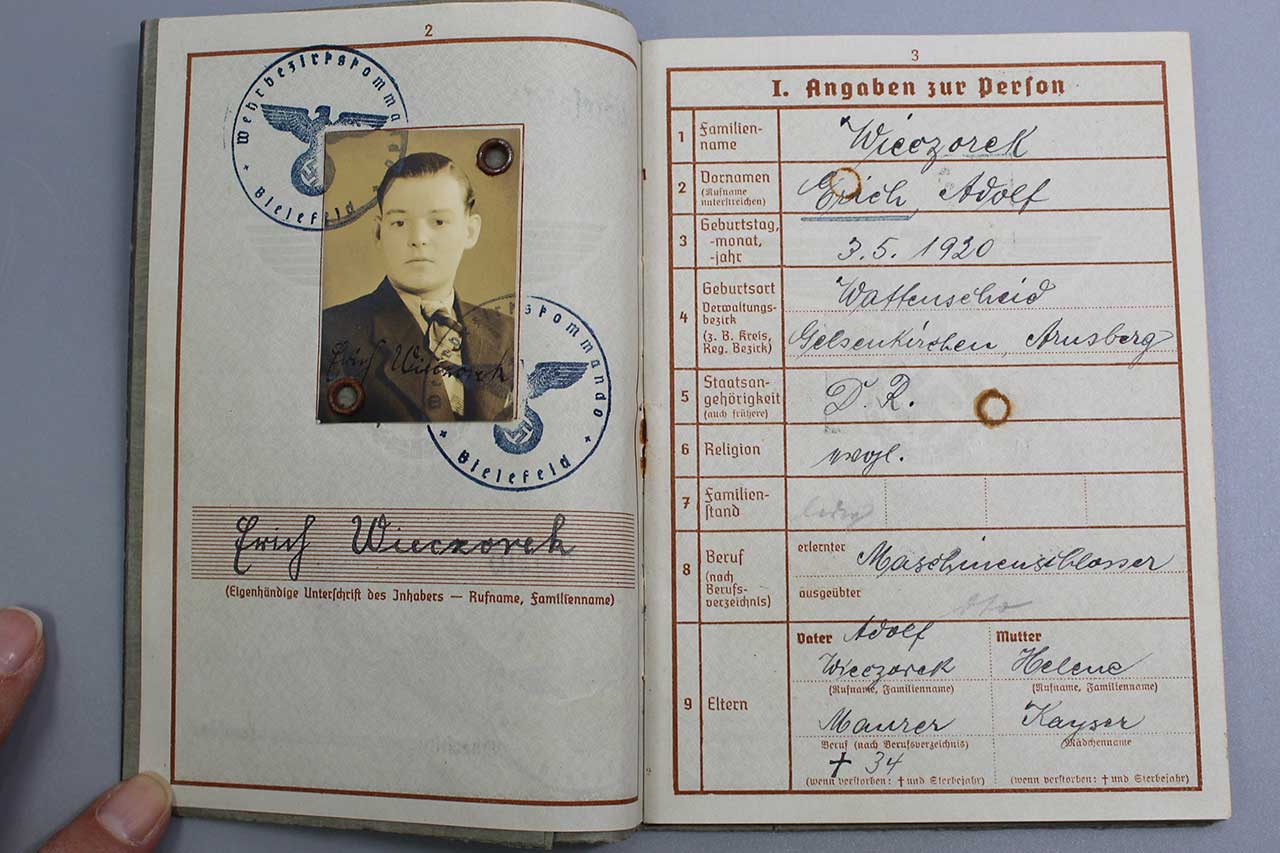 2
Wehrbezirkskomma
Bielefeld
Erich Wieczorek
kommando
Bielefeld
Erich Wieczorek
(Eigenhändige Unterschrift des Inhabers — Rufname, Familienname)
3
I. Angaben zur Person
1 Familien-
name
Wieczorek
2 Vornamen
(Rufname
unterstreichen)
Erich, Adolf
3 Geburtstag,
-monat,
-jahr
3.5. 1920
4 Geburtsort
Verwaltungs-
bezirk
(z. B. Kreis,
Reg. Bezirk)
Wattenscheid
Gelsenkirchen, Arnsberg
5 Staatsan-
gehörigkeit
(auch frühere)
D. R.
6 Religion
evgl.
7 Familien-
stand
ledig
8 Beruf
(nach
Berufs-
verzeichnis)
erlernter Maschinenschlosser
ausgeübter
dto
9 Eltern
Vater Adolf
Wieczorek
(Rufname, Familienname)
Maurer
Beruf (nach Berufsverzeichnis)
† 34
(wenn verstorben: † und Sterbejahr)
Mutter
Helene
(Rufname, Familienname)
Kayser
Mädchenname
(wenn verstorben: † und Sterbejahr)